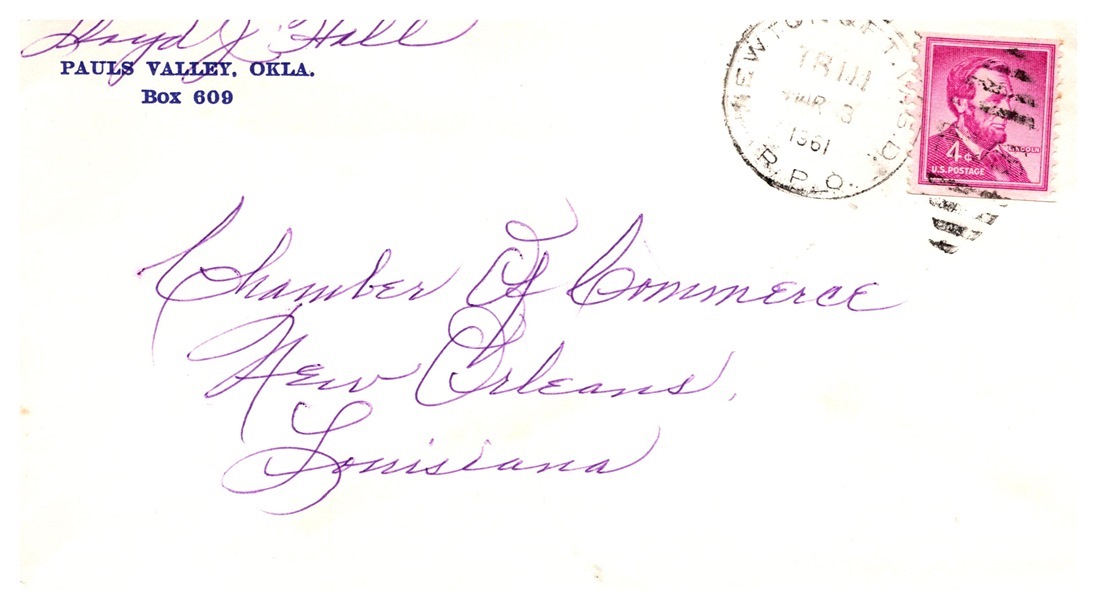 Floyd J. Hall
PAULS VALLEY, OKLA.
Box 609
NEWTON & FT. W. S.D.
MAR 3
1961
R.P.O.
LINCOLN
4¢
U.S. POSTAGE
Chamber Of Commerce
New Orleans,
Louisiana